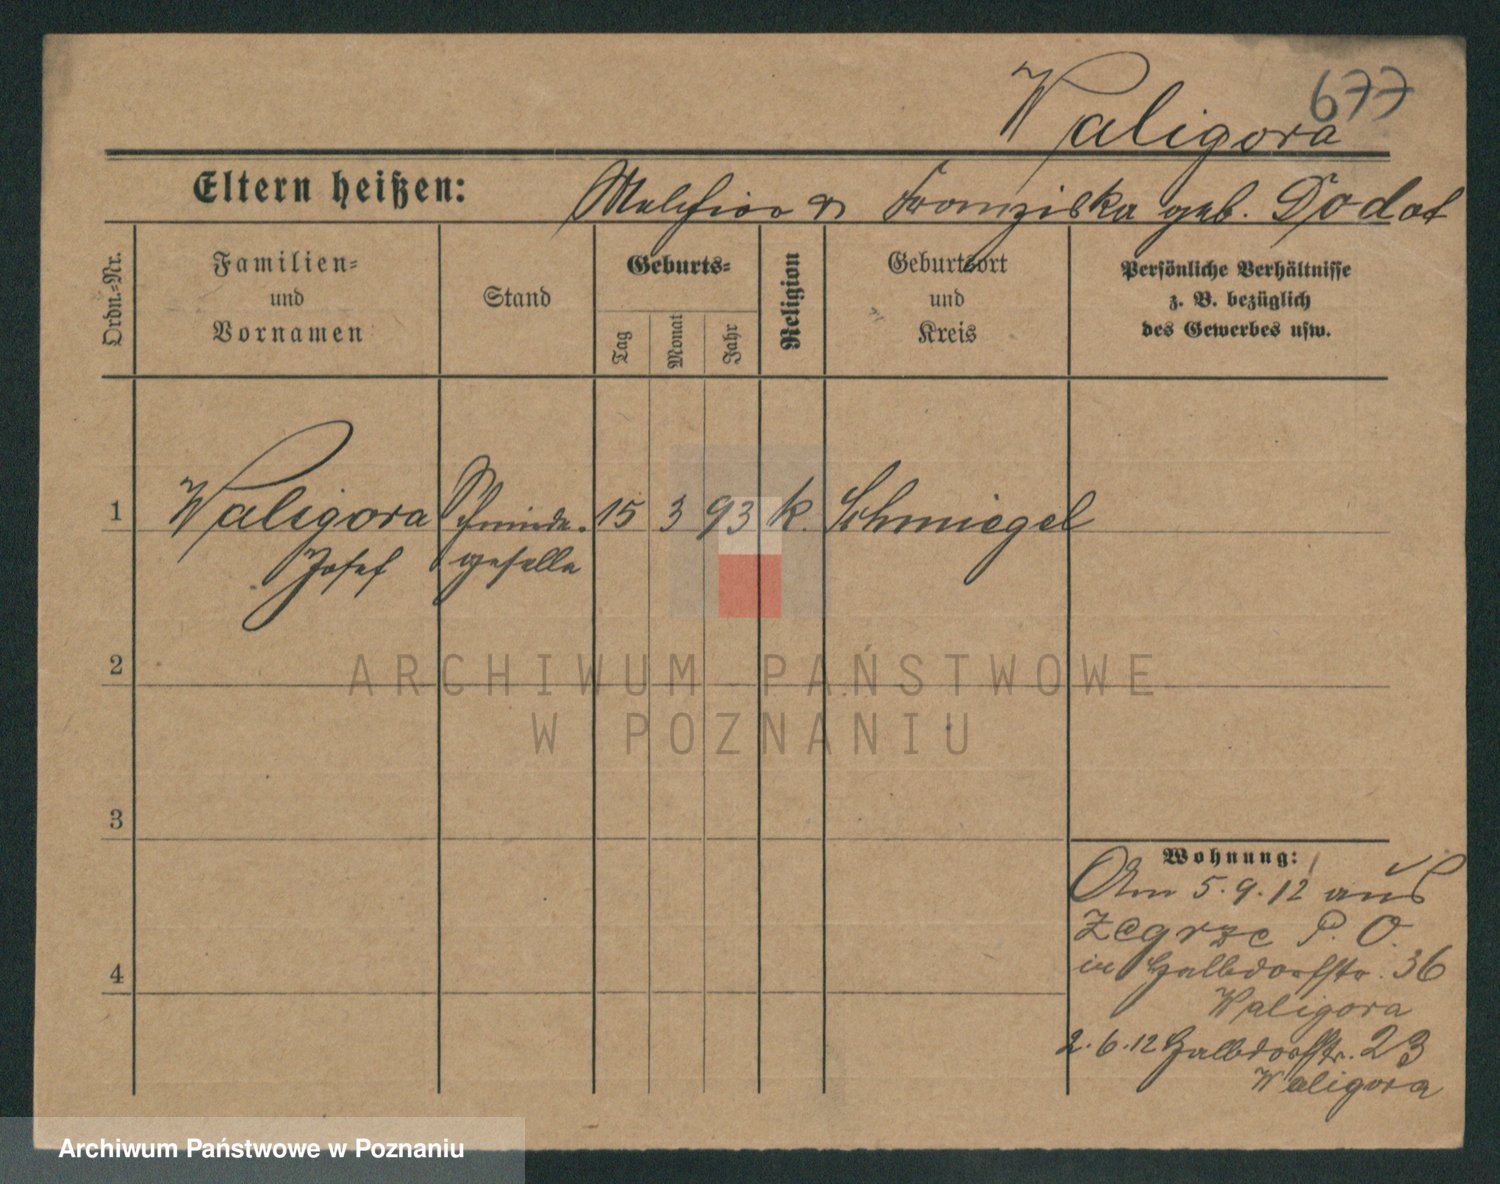 677
Waligora
Eltern heißen: Melchior u Franziska geb. Dodot
Ordn.-Nr.
Familien-
und
Vornamen
Stand
Geburts-
Tag
Monat
Jahr
Religion
Geburtsort
und
Kreis
Persönliche Verhältnisse
z. B. bezüglich
des Gewerbes usw.
1 Waligora Schmiede- 15 3 93 k. Schmiegel
Josef geselle
2
ARCHIWUM PAŃSTWOWE
W POZNANIU
3
Wohnung:
Am 5.9.12 aus
Zegrze P. O.
4
in Halbdorfstr. 36
Waligora
2.6.12 Halbdorfstr. 23
Waligora
Archiwum Państwowe w Poznaniu